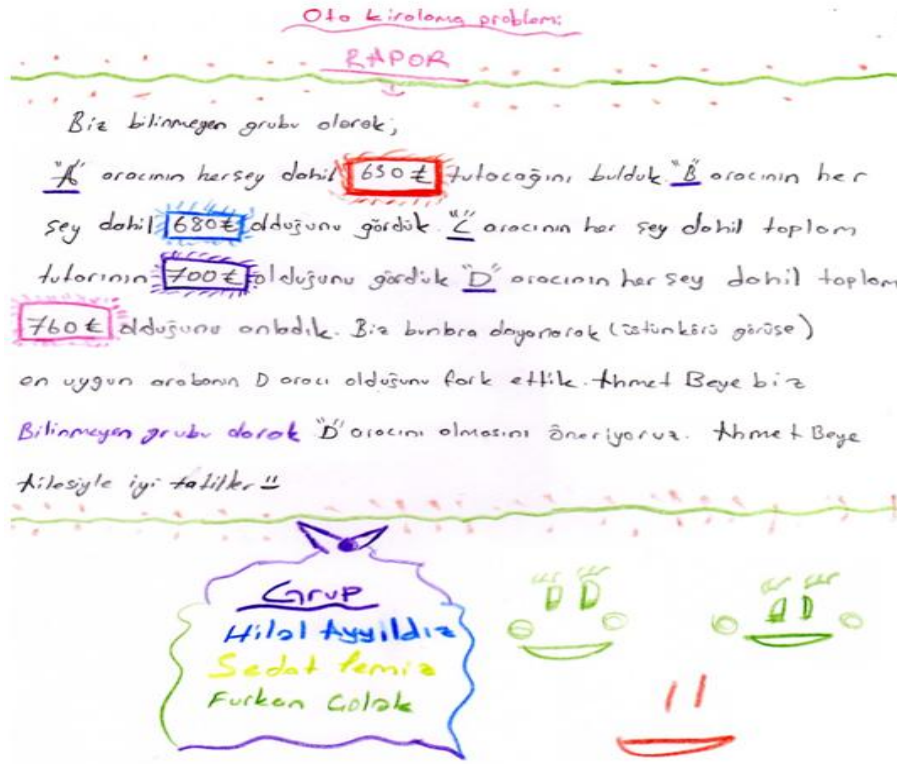 Oto kiralama problemi
RAPOR
Biz bilinmeyen grubu olarak;
"A" aracının herşey dahil 650 ₺ tutacağını bulduk. "B" aracının her
şey dahil 680 ₺ olduğunu gördük. "C" aracının her şey dahil toplam
tutarının 700 ₺ olduğunu gördük "D" aracının her şey dahil toplam
760 ₺ olduğunu anladık. Biz bunlara dayanarak (üstünkörü görüşe)
en uygun arabanın D aracı olduğunu fark ettik. Ahmet Beye biz
Bilinmeyen grubu olarak "D" aracını olmasını öneriyoruz. Ahmet Beye
Ailesiyle iyi tatiller
Grup
Hilal Ayyıldız
Sedat Temiz
Furkan Çolak